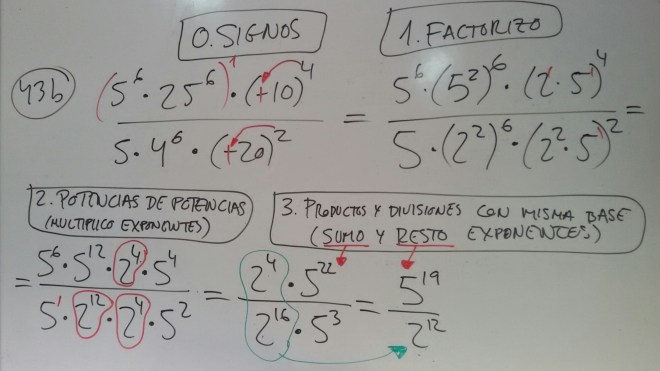 0. SIGNOS
1. FACTORIZO
43b
(5⁶ · 25⁶)¹ · (+10)⁴ / 5 · 4⁶ · (+20)² = 5⁶ · (5²)⁶ · (2 · 5)⁴ / 5 · (2²)⁶ · (2² · 5)² =
2. POTENCIAS DE POTENCIAS
(MULTIPLICO EXPONENTES)
3. PRODUCTOS Y DIVISIONES CON MISMA BASE
(SUMO Y RESTO EXPONENTES)
= 5⁶ · 5¹² · 2⁴ · 5⁴ / 5¹ · 2¹² · 2⁴ · 5² = 2⁴ · 5²² / 2¹⁶ · 5³ = 5¹⁹ / 2¹²